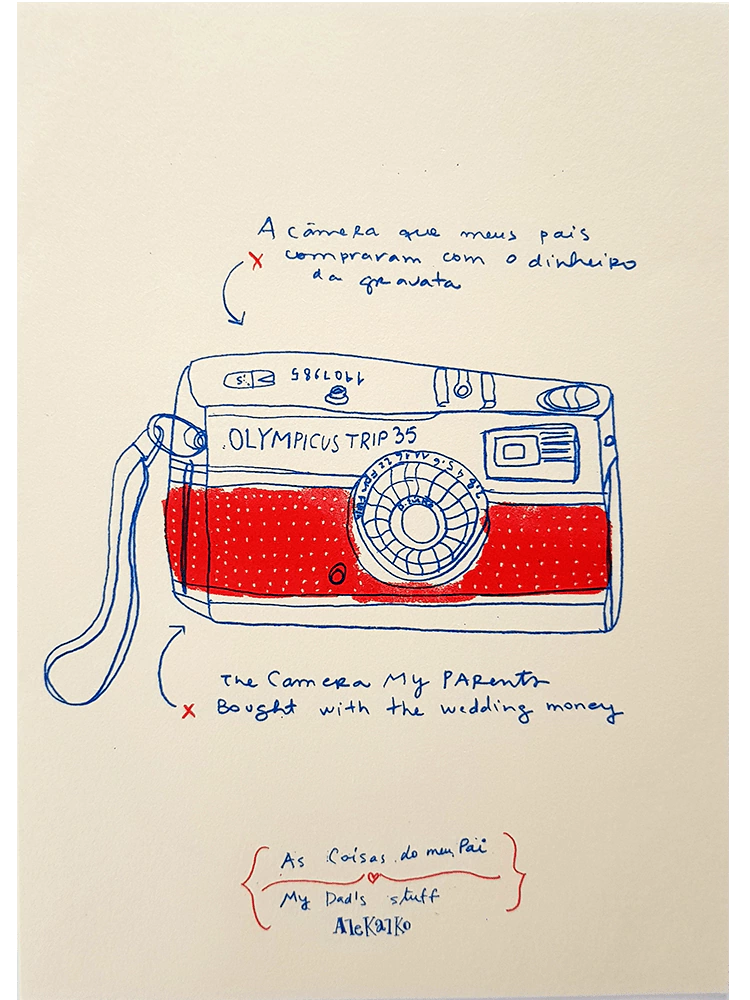 A câmera que meus pais
x compraram com o dinheiro
da gravata
1107985
.OLYMPICUS TRIP 35
The Camera My PARents
x Bought with the wedding money
As Coisas do meu Pai
My Dad's stuff
AleKalKo